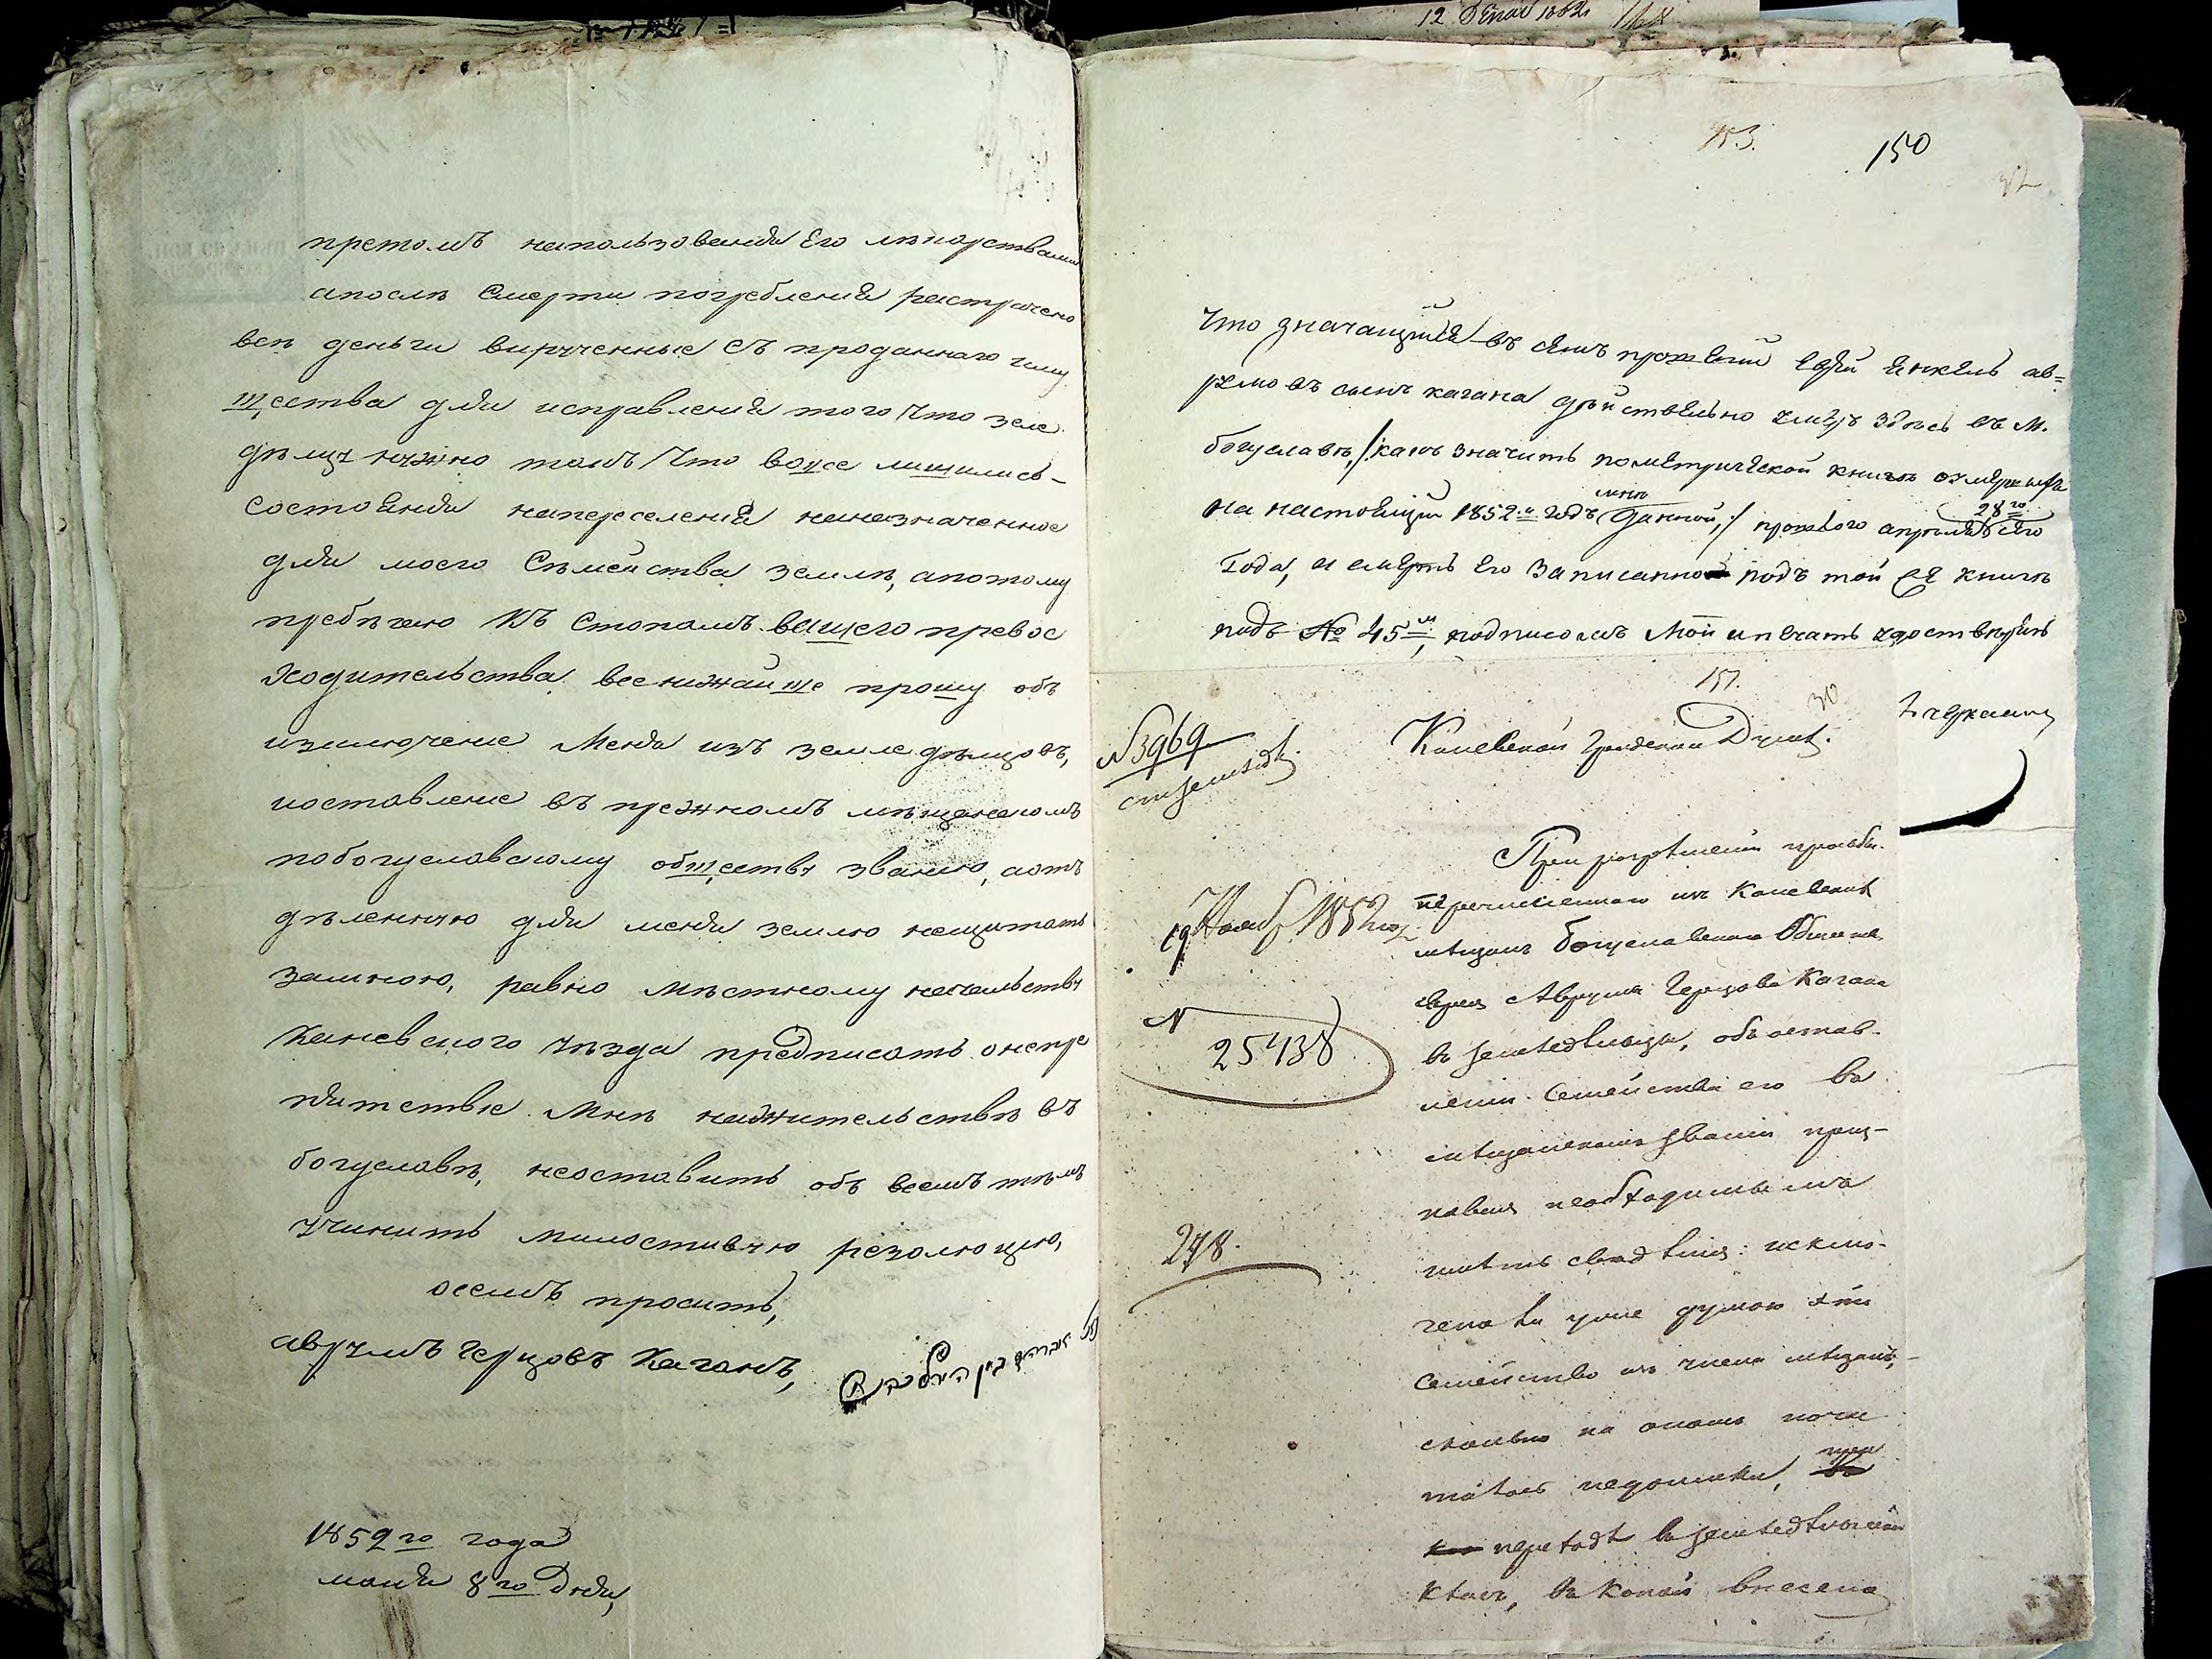 претомъ напользованія Его лѣкарствами
апослѣ Смерти погребленія растрачено
всѣ деньги вирученные Съ проданнаго иму
щества для исправленія того Что земле
дѣлцу нужно такъ Что вовсе лишились
состоянія напереселеніе наназначенное
для моего Съмейства землѣ, апотому
прибѣгаю Къ Стопамъ вашего превос
ходительства всенижайше прошу объ
изключеніе Меня изъ земледѣлцовъ,
иоставленіе въ прежномъ мѣщанскомъ
побогуславскому обществу званію, аотъ
дѣленную для меня землю нещитать
замною, равно мѣстному начальству
Каневского уѣзда предписать онепре
пятствіе Мнѣ нажительствѣ въ
богуславѣ, неоставить объ всемъ тѣмъ
учинить милостивую резолюцію,
осемъ просить,
аврумъ Герцовъ Каганъ,
1852го года
маія 8го Дня,
12 1862
153.
150
Что значащійся въ семъ прошеніи Еврей Янкель ав=
румовъ сынъ кагана дѣйствительно умеръ здѣсь въ М.
богуславѣ, /:какъ значитъ пометрической книги охмерытъ
на настоящій 1852й годъ мнѣ данной,:/ прошлого апрыля 28го сего
Года, и смерть Его записанно подъ той же книги
подъ № 45м, подписомъ Мой ипечать удоствѣрилъ
151.
30
№3969
Каневской Градской Думѣ.
При разрѣшеніи прозьбы
перечисленнаго изъ Каневскихъ
мѣщанъ Богуславскаго Общества
еврея Аврума Герцова Кагана
въ земледѣльцы, объ остав-
леніи Семейства его въ
мѣщанскомъ званіи приз-
навая необходимымъ
имѣть сведѣнія: исклю-
чено ли уже думою это
Семейство изъ числа мѣщанъ,
сколько на ономъ почи
талось недоимки, при
переходѣ въ земледѣльческій
Класъ, въ какой внесена
19 Нояб 1852 год.
N
25438
248.